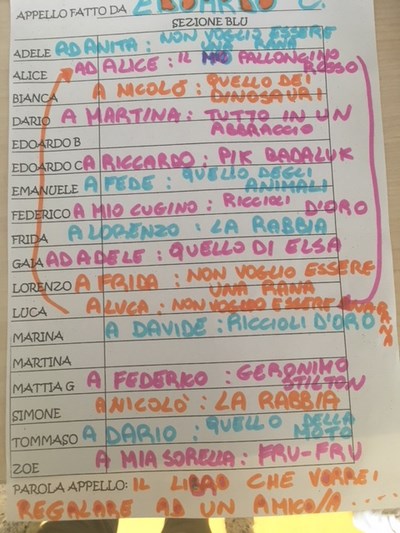 APPELLO FATTO DA EDOARDO C.
SEZIONE BLU
ADELE AD ANITA: NON VOGLIO ESSERE
UNA RANA
ALICE AD ALICE: IL MIO PALLONCINO
ROSSO
BIANCA A NICOLÒ: QUELLO DEI
DINOSAURI
DARIO A MARTINA: TUTTO IN UN
ABBRACCIO
EDOARDO B
EDOARDO C A RICCARDO: PIK BADALUK
EMANUELE A FEDE: QUELLO DEGLI
ANIMALI
FEDERICO A MIO CUGINO: RICCIOLI
D'ORO
FRIDA A LORENZO: LA RABBIA
GAIA AD ADELE: QUELLO DI ELSA
LORENZO A FRIDA: NON VOGLIO ESSERE
UNA RANA
LUCA A LUCA: NON VOGLIO ESSERE UNA RANA
MARINA A DAVIDE: RICCIOLI D'ORO
MARTINA
MATTIA G A FEDERICO: GERONIMO
STILTON
SIMONE A NICOLÒ: LA RABBIA
TOMMASO A DARIO: QUELLO DELLA
MOTO
ZOE A MIA SORELLA: FRU-FRU
PAROLA APPELLO: IL LIBRO CHE VORREI
REGALARE AD UN AMICO/A....